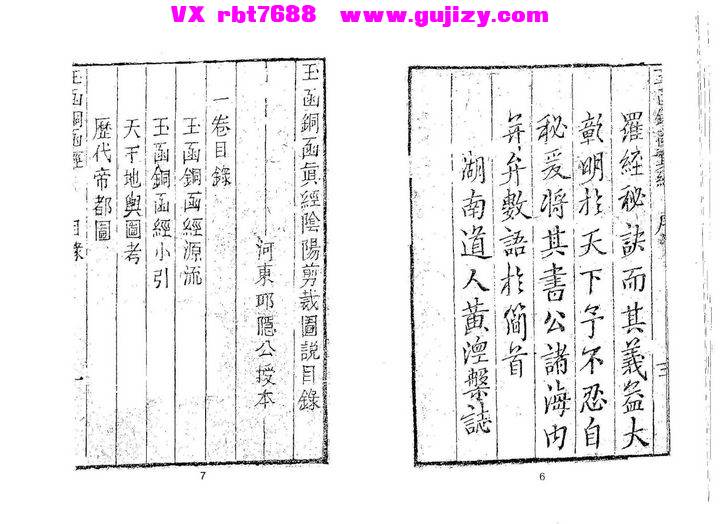 VX rbt7688 www.gujizy.com
羅經秘訣而其義益大
彰明於天下予不忍自
秘爰將其書公諸海內
弁數語於簡首
湖南道人黃澄槃誌
三
6
玉函銅函眞經陰陽剪裁圖說目錄
河東邱隱公授本
一卷目錄
玉函銅函經源流
玉函銅函經小引
天下地輿圖考
歷代帝都圖
玉函銅函經 目錄
一
7